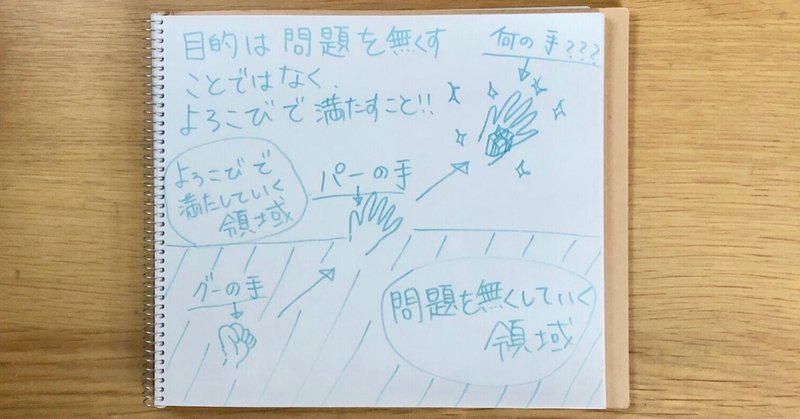 目的は問題を無くす
ことではなく、
よろこびで満たすこと!!
何の手???
よろこびで
満たしていく
領域
パーの手
グーの手
問題を無くしていく
領域